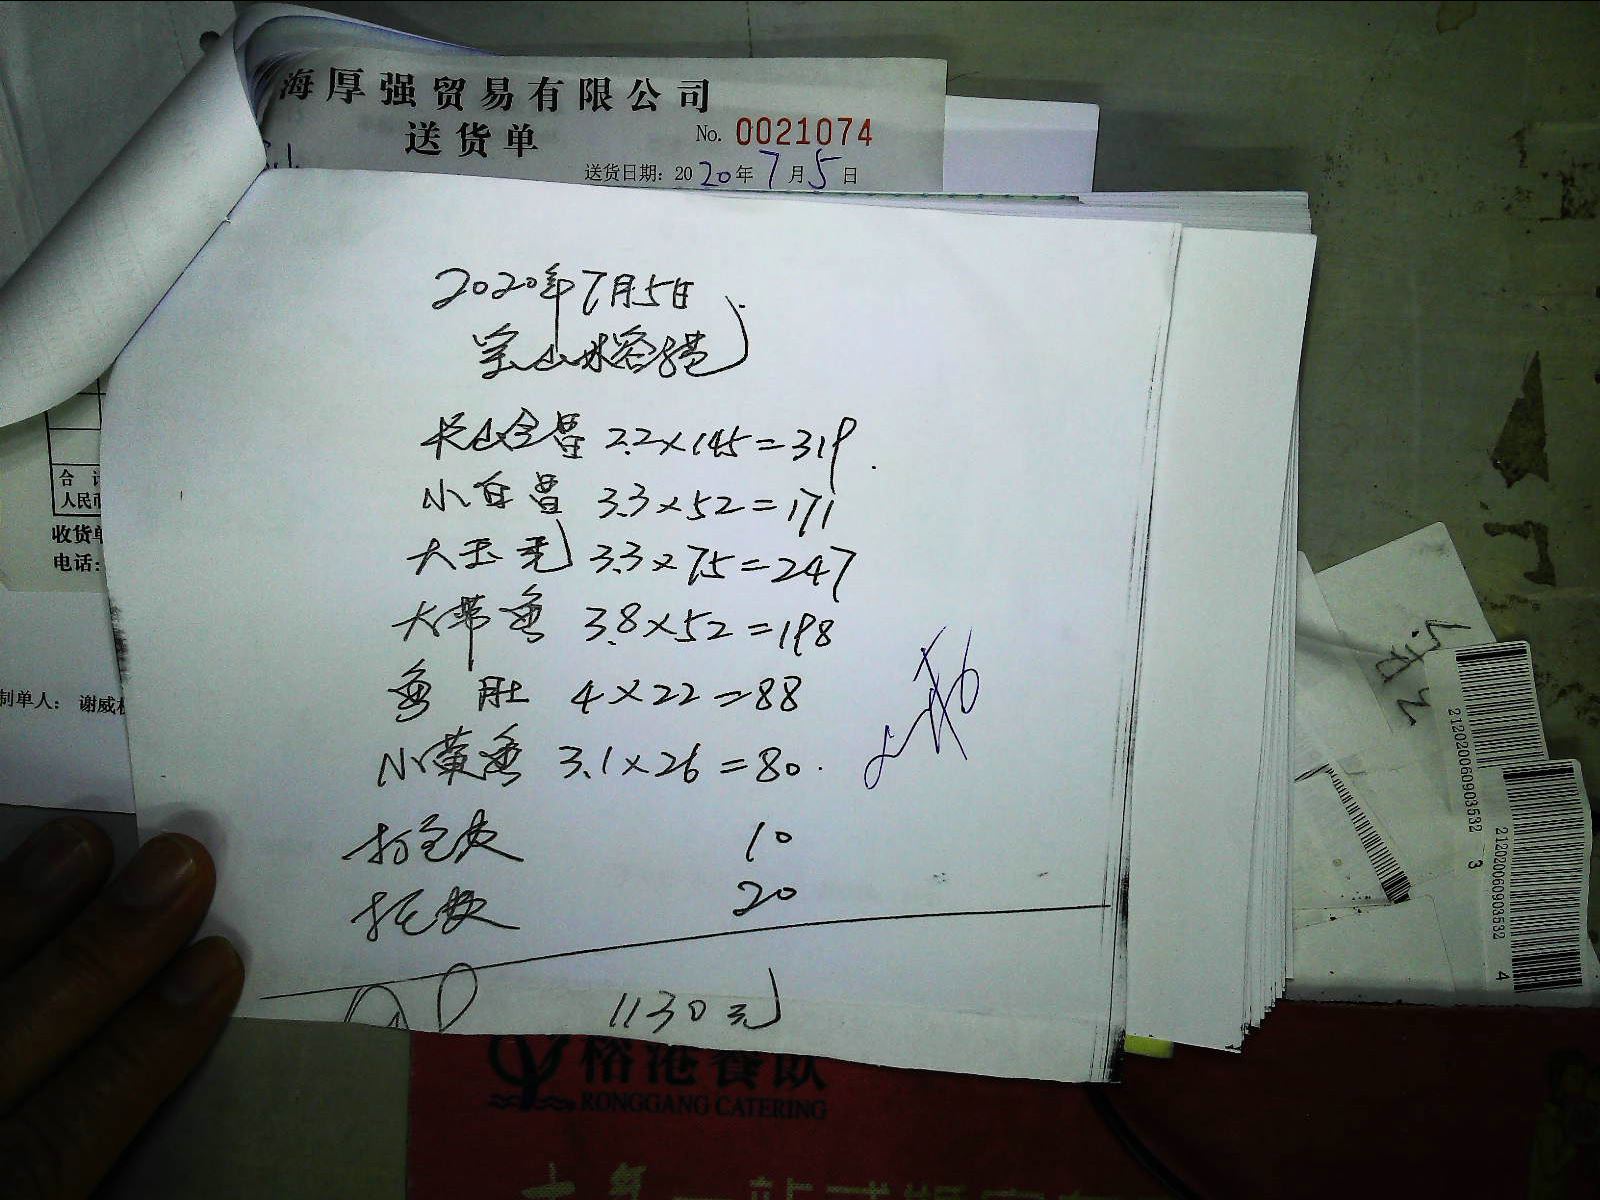 海厚强贸易有限公司
送货单
No. 0021074
送货日期: 2020年7月5日
2020年7月5日
宝山榕港
长山全鲁 2.2×145=319
小白鲁 3.3×52=171
大玉秃 3.3×75=247
大带鱼 3.8×52=198
鱼肚 4×22=88
小黄鱼 3.1×26=80
打包费 10
托费 20
1130元
合计
人民币
收货单
电话:
制单人: 谢威
榕港餐饮
RONGGANG CATERING
212020060903532 3
212020060903532 4